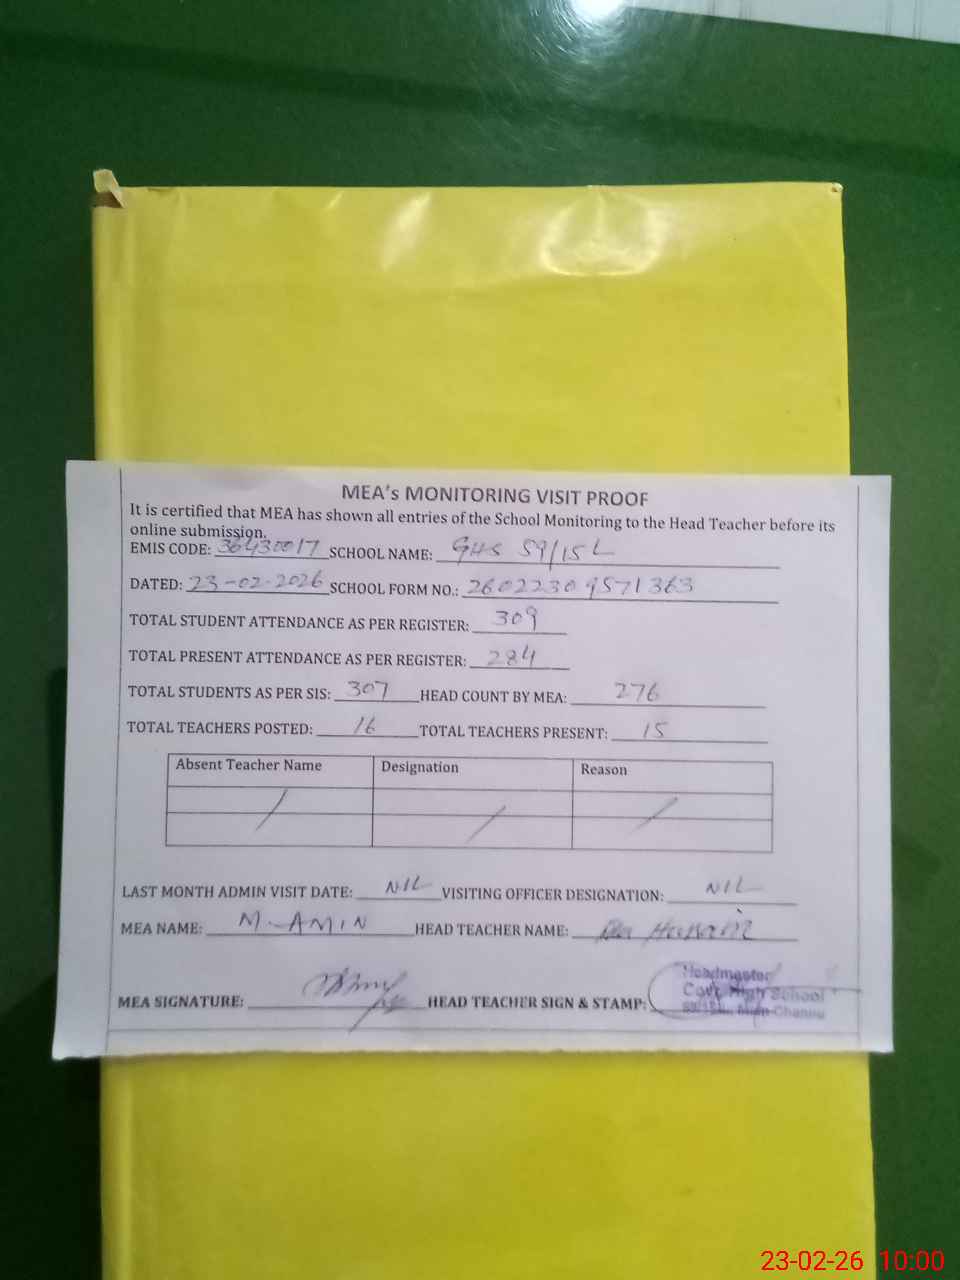 MEA's MONITORING VISIT PROOF
It is certified that MEA has shown all entries of the School Monitoring to the Head Teacher before its
online submission.
EMIS CODE: 36430017 SCHOOL NAME: GHS 59/15L
DATED: 23-02-2026 SCHOOL FORM NO.: 26022309571363
TOTAL STUDENT ATTENDANCE AS PER REGISTER: 309
TOTAL PRESENT ATTENDANCE AS PER REGISTER: 284
TOTAL STUDENTS AS PER SIS: 307 HEAD COUNT BY MEA: 276
TOTAL TEACHERS POSTED: 16 TOTAL TEACHERS PRESENT: 15
Absent Teacher Name Designation Reason
LAST MONTH ADMIN VISIT DATE: NIL VISITING OFFICER DESIGNATION: NIL
MEA NAME: M. AMIN HEAD TEACHER NAME:
MEA SIGNATURE: HEAD TEACHER SIGN & STAMP:
Headmaster
Govt. High School
Mian Channu
23-02-26 10:00